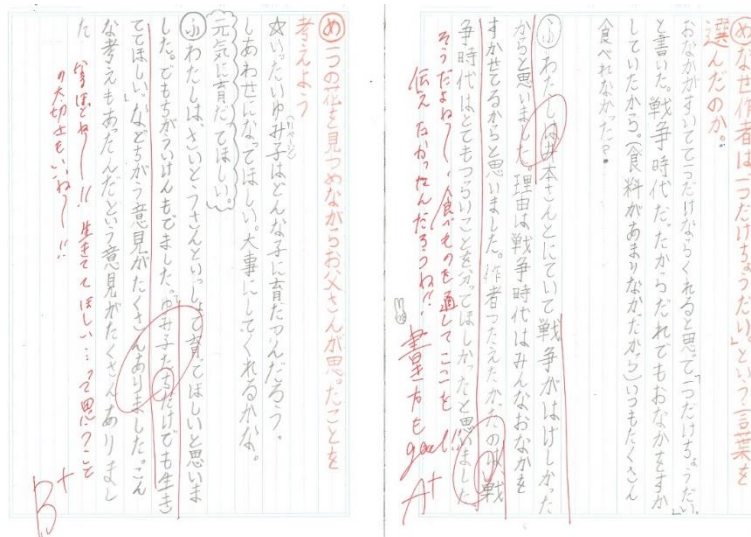 め なぜ作者は「一つだけちょうだい。」という言葉を
選んだのか。
おなかがすいてて一つだけならくれると思って「一つだけちょうだい。」
と書いた。戦争時代だったからだれでもおなかをすか
していたから。(食料があまりなかったから)いつもたくさん
食べれなかった?
ふ わたしは 本さんとにていて戦争がはげしかった
からと思いました。理由は戦争時代はみんなおなかを
すかせてるからと思いました。作者つたえたかったのは戦
争時代はとてもつらいことを分ってほしかったと思いました
そうだよね〜、食べものを通してここを!!
伝えたかったんだろうね!!
書き方も good!!
A+
め 一つの花を見つめながらお父さんが思ったことを
考えよう
☆いったいゆみ子はどんな子に育だつんだろう。
しあわせになってほしい。大事にしてくれるかな。
元気に育だてほしい。
ふ わたしは、さいとうさんといっしょで育てほしいと思いま
した。でもちがういけんもでました。ゆみ子たちだけでも生き
ててほしい。などちがう意見がたくさんありました。こん
な考えもあったんだという意見がたくさんありまし
た
なるほどね〜!!生きててほしい…って思うこと
の大切さもいいね〜!!
B+